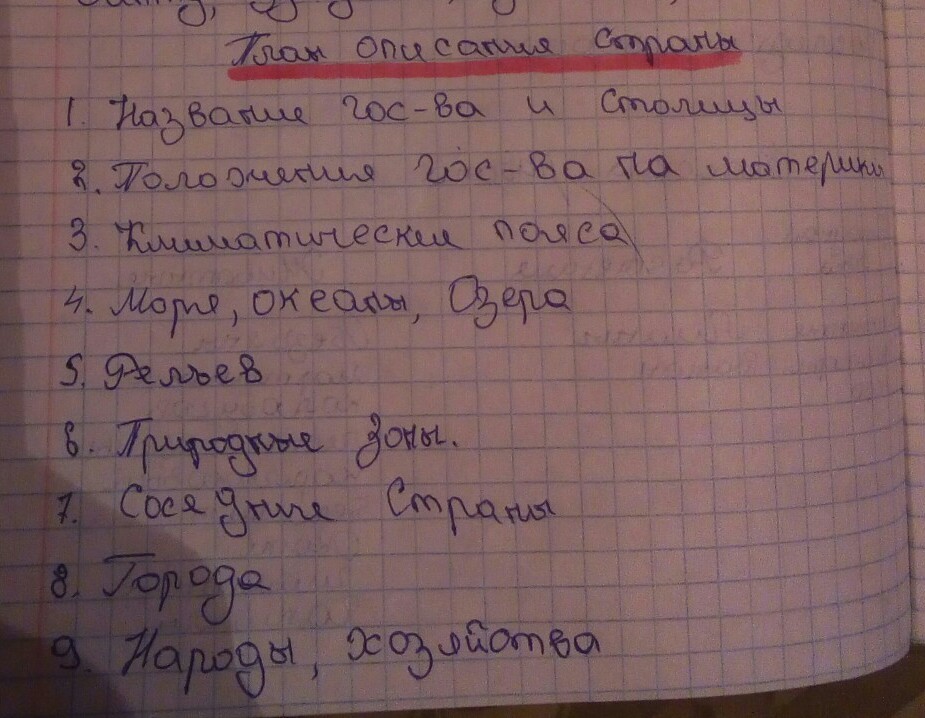 План описания страны
1. Название гос-ва и столицы
2. Положения гос-ва на материки
3. Климатически пояса
4. Моря, океаны, Озера
5. Рельев
6. Природные зоны.
7. Соседние Страны
8. Города
9. Народы, хозяйства